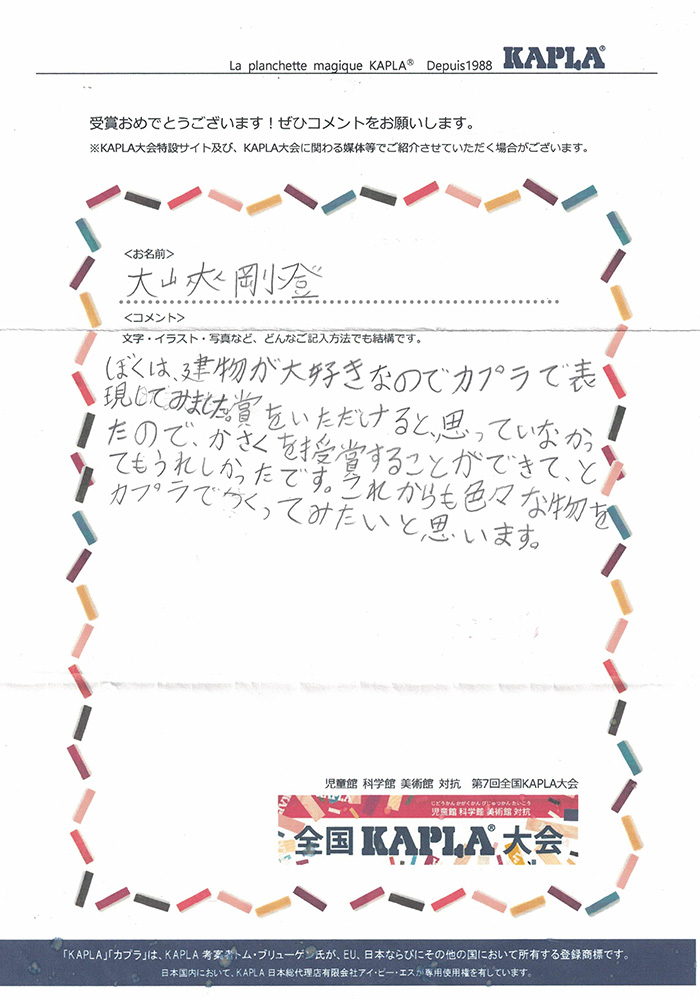 La planchette magique KAPLA® Depuis1988 KAPLA®
受賞おめでとうございます！ぜひコメントをお願いします。
※KAPLA大会特設サイト及び、KAPLA大会に関わる媒体等でご紹介させていただく場合がございます。
<お名前>
大山 剛登
<コメント>
文字・イラスト・写真など、どんなご記入方法でも結構です。
ぼくは、建物が大好きなのでカプラで表
現してみました。賞をいただけると思っていなかっ
たので、かさくを授賞することができて、と
てもうれしかったです。これからも色々な物を
カプラでつくってみたいと思います。
児童館 科学館 美術館 対抗 第7回全国KAPLA大会
じどうかん かがくかん びじゅつかん たいこう
児童館 科学館 美術館 対抗
全国 KAPLA® 大会
「KAPLA」「カプラ」は、KAPLA 考案者トム・ブリューゲン氏が、EU、日本ならびにその他の国において所有する登録商標です。
日本国内において、KAPLA 日本総代理店有限会社アイ・ピー・エスが専用使用権を有しています。